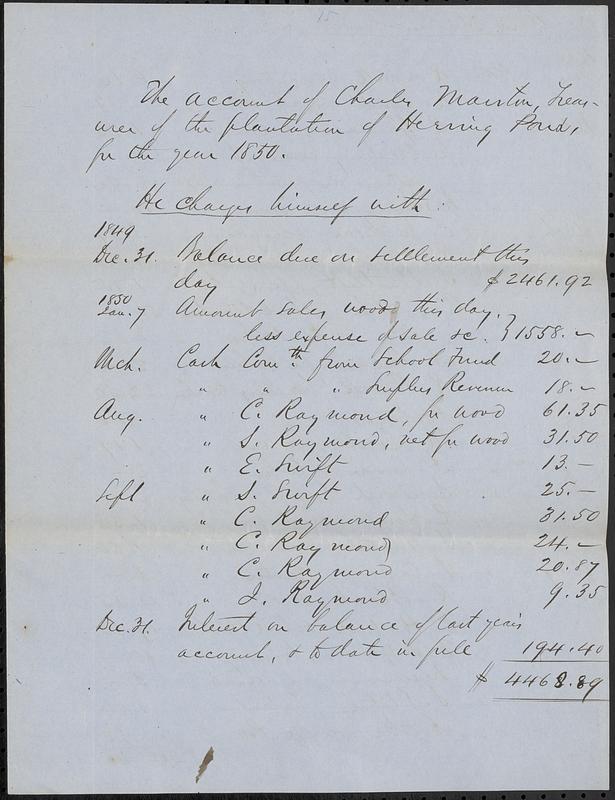 15
The account of Charles Marston, Treas-
urer of the plantation of Herring Pond,
for the year 1850.
He charges himself with:
1849
Dec. 31. Balance due on settlement this
day $2461.92
1850
Jan. 7 Amount sales wood this day,
less expense of sale &c. } 1558.–
Mch. Cash Com:th from School Fund 20.–
" " " Surplus Revenue 18.–
Aug. " C. Raymond, for wood 61.35
" S. Raymond, net for wood 31.50
" E. Swift 13.–
Sept " S. Swift 25.–
" C. Raymond 31.50
" C. Raymond 24.–
" C. Raymond 20.87
" J. Raymond 9.35
Dec. 31. Interest on balance of last years
account, & to date in full 194.40
$ 4468.89